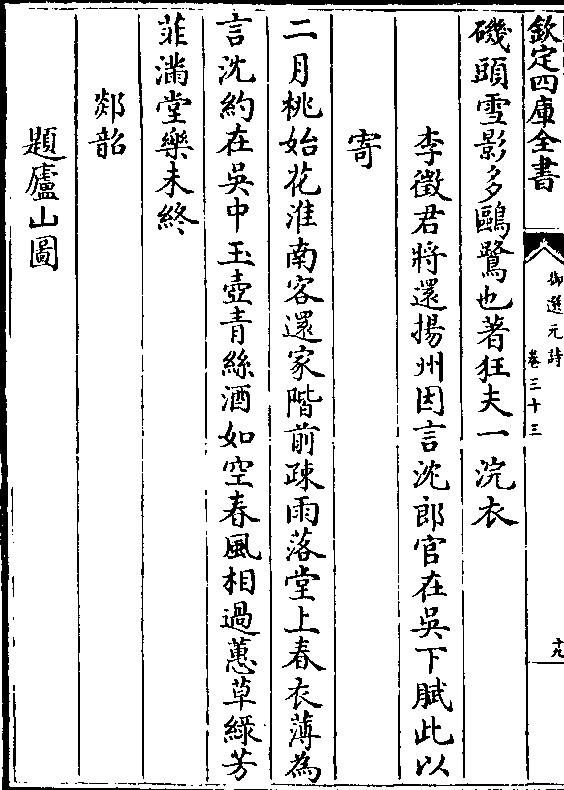 欽定四庫全書
御選元詩
卷三十三
十九
磯頭雪影多鷗鷺也著狂夫一浣衣
李徵君將還揚州因言沈郎官在吳下賦此以
寄
二月桃始花淮南客還家階前疎雨落堂上春衣薄為
言沈約在吳中玉壺青絲酒如空春風相過蕙草綠芳
菲滿堂樂未終
郯韶
題廬山圖